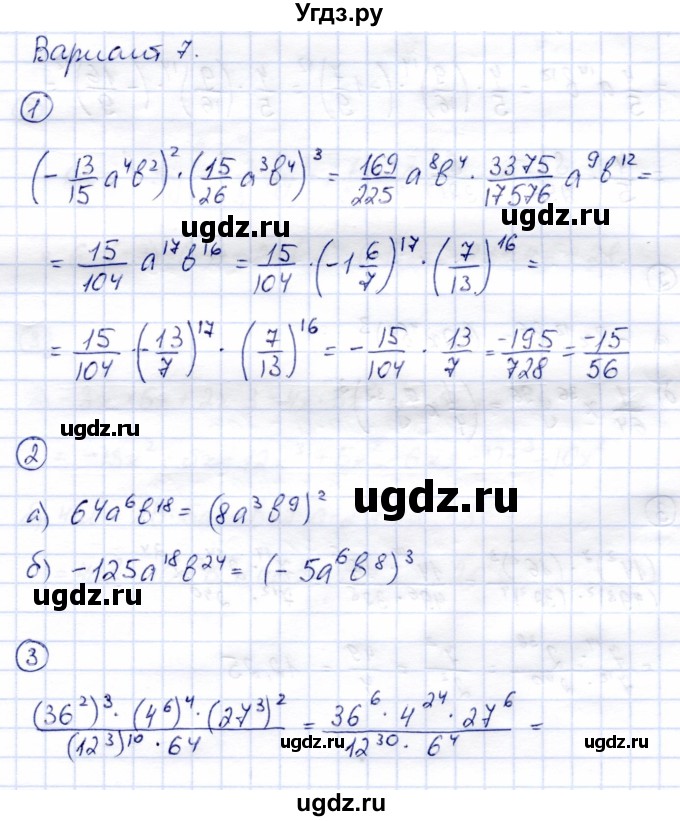 Угдз.ру
Вариант 7.
1
(-13/15 a⁴b²)² · (15/26 a³b⁴)³ = 169/225 a⁸b⁴ · 3375/17576 a⁹b¹² =
= 15/104 a¹⁷b¹⁶ = 15/104 · (-1 6/7)¹⁷ · (7/13)¹⁶ =
ugdz.ru
= 15/104 · (-13/7)¹⁷ · (7/13)¹⁶ = -15/104 · 13/7 = -195/728 = -15/56
ugdz.ru
2
ugdz.ru
а) 64a⁶b¹⁸ = (8a³b⁹)²
б) -125a¹⁸b²⁴ = (-5a⁶b⁸)³
ugdz.ru
3
(36²)³ · (4⁶)⁴ · (27³)² / (12³)¹⁰ · 64 = 36⁶ · 4²⁴ · 27⁶ / 12³⁰ · 6⁴ =
ugdz.ru ugdz.ru
ugdz.ru